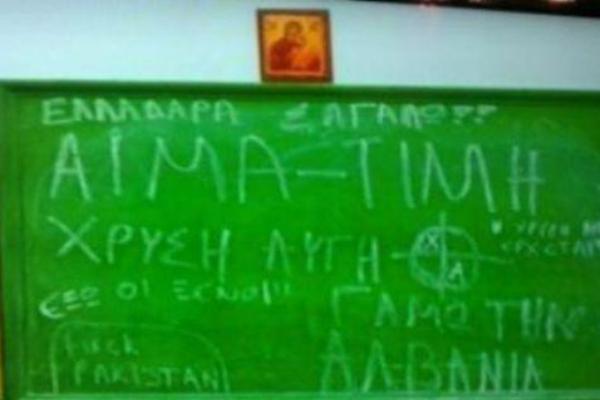 ΕΛΛΑΔΑΡΑ Σ'ΑΓΑΠΩ!!
ΑΙΜΑ-ΤΙΜΗ
ΧΡΥΣΗ ΑΥΓΗ
Χ Α
ΕΞΩ ΟΙ ΞΕΝΟΙ!!
ΓΑΜΩ ΤΗΝ
ΑΛΒΑΝΙΑ
fuck
PAKISTAN